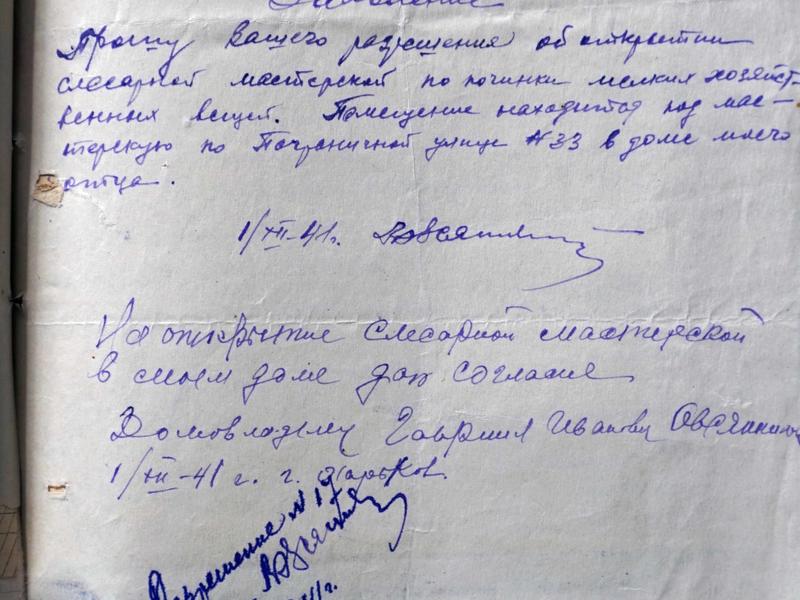 Заявление
Прошу Вашего разрешения об открытии
слесарной мастерской по починки мелких хозяйст-
венных вещей. Помещение находится под мас-
терскую по Пограничной улице №33 в доме моего
отца.
1/XII-41г.
На открытие слесарной мастерской
в моем доме дал согласие
Домовладелец Гавриил Иванович Овсянников
1/XII-41 г. г. Харьков.
Разрешение №17
41г.